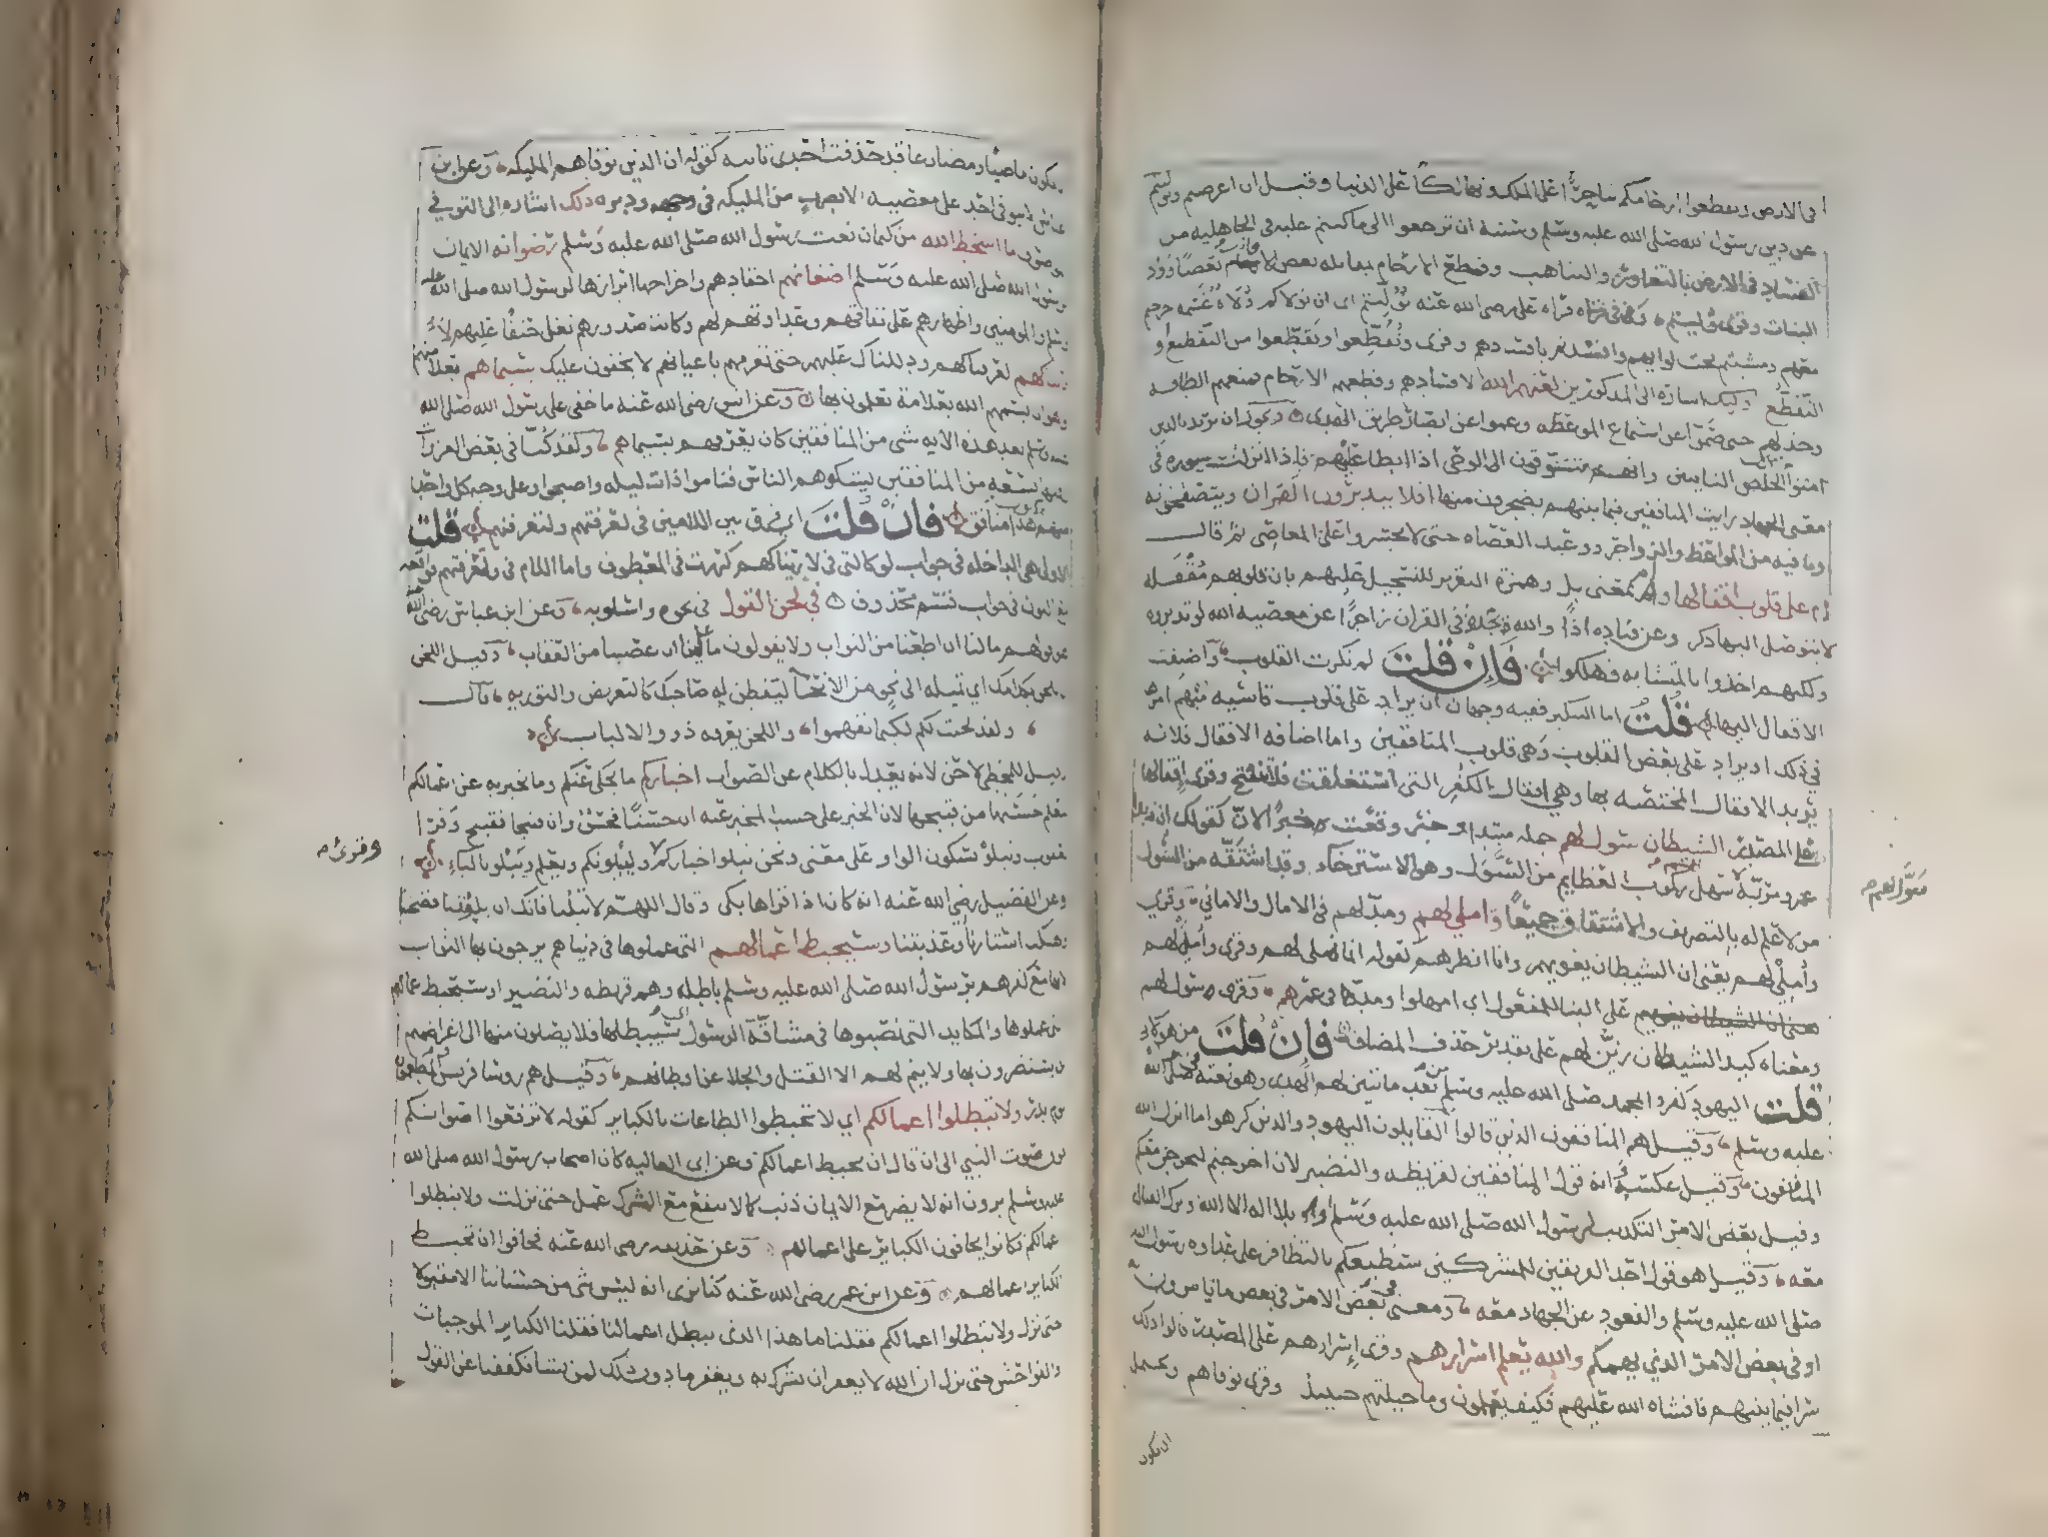 في الارض وتقطعوا ارحامكم تناحرًا على الملك وتهالكًا على الدنيا وقيل ان اعرضتم وتوليتم
عن دين رسول الله صلى الله عليه وسلم وسنته ان ترجعوا الى ما كنتم عليه في الجاهليه من
الفساد في الارض بالتغاور والتناهب وقطع الارحام بمقاتله بعض الاقارب بعضًا ووأد
البنات وقرئ وليتم وفي قراة على رضى الله عنه تُوُلّيتم اى ان تولاكم ولاة غشمه خرجتم
معهم ومشيتم تحت لوايهم وافسدتم بافسادهم وقرى وتُقَطِّعوا وتَقَطَّعوا من التقطيع و
التقطّع اوليك اشارة الى المذكورين لعنهم الله لافسادهم وقطعهم الارحام فمنعهم الطافه
وخذلهم حتى صمّوا عن استماع الموعظه وعموا عن ابصار طريق الهدى ويجوز ان يريد بالذين
امنوا الخلّص الثابتين وانهم يتشوقون الى الوحى اذا ابطا عليهم فاذا انزلت سوره في
معنى الجهاد رايت المنافقين فيما بينهم يضجرون منها افلا يتدبرون القران ويتصفحونه
وما فيه من المواعظ والزواجر ووعيد العصاه حتى لا يجسروا على المعاصى ثم قال
ام على قلوب اقفالها وام بمعنى بل وهمزة التقرير للتسجيل عليهم بان قلوبهم مقفله
لا يتوصل اليها ذكر وعن قتاده اذًا والله تجدوا في القران زاجرًا عن معصيه الله لو تدبروه
ولكنهم اخذوا بالمتشابه فهلكوا فان قلت لم نكرت القلوب واضيفت
الاقفال اليها قلت اما التنكير ففيه وجهان ان يراد على قلوب قاسيه مبهم امرها
في ذلك او يراد على بعض القلوب وهى قلوب المنافقين واما اضافه الاقفال فلانه
يريد الاقفال المختصه بها وهي اقفال الكفر التى استغلقت فلا تنفتح وقرى إقفالها
على المصدر الشيطان سول لهم جمله من مبتدا وخبر وقعت خبرًا لانّ كقولك ان زيدا
عمرو مرّ به سهل لهم ركوب العظايم من السَّوَل وهو الاسترخاء وقد اشتقه من السُّول
من لا علم له بالتصريف والاشتقاق جميعًا واملى لهم ومدّ لهم في الامال والامانى وقرى
وأُملِي لهم يعنى ان الشيطان يغويهم وانا انظرهم كقوله انما نملى لهم وقرى وأُمليَ لهم
على البنا للمفعول اي امهلوا ومدّ في عمرهم وقرى سُوّل لهم
ومعناه كيد الشيطان زيّن لهم على تقدير حذف المضاف فان قلت من هؤلاء
قلت اليهود كفروا بمحمد صلى الله عليه وسلم من بعد ما تبين لهم الهدى وهو نعته
عليه وسلم وقيل هم المنافقون الذين قالوا القايلون اليهود والذين كرهوا ما انزل الله
المنافقون وقيل عكسه وانه قول المنافقين لقريظه والنضير لان اخرجتم لنخرجن معكم
وقيل بعض الامر التكذيب لرسول الله صلى الله عليه وسلم او بلا اله الا الله وترك القتال
معه وقيل هو قول احد الفريقين للمشركين سنطيعكم بالتظافر على عداوه رسول الله
صلى الله عليه وسلم والقعود عن الجهاد معه ومعنى في بعض الامر في بعض ما تامرون به
او في بعض الامر الذي يهمكم والله يعلم اسرارهم وقرى إسرارهم على المصدر قالوا ذلك
سرا فيما بينهم فافشاه الله عليهم فكيف يعملون وما حيلتهم حينيذ وقرى توفاهم ويحتمل
ان يكون
سوّل لهم
يكون ماضيًا ومضارعا قد حذفت احدى تاييه كقوله ان الذين توفاهم المليكه وعن ابن
عباس لا يتوفى احد على معصيه الا يضرب من المليكه في وجهه ودبره ذلك اشاره الى التوفي
الموصوف ما اسخط الله من كتمان نعت رسول الله صلى الله عليه وسلم رضوانه الايمان
برسول الله صلى الله عليه وسلم اضغانهم احقادهم واخراجها ابرازها لرسول الله صلى الله عليه
وسلم والمومنين واظهارهم على نفاقهم وعداوتهم لهم وكانت صدورهم تغلى حنقًا عليهم لا
ريناكهم لعرفناكهم ودللناك عليهم حتى تعرفهم باعيانهم لا يخفون عليك بسيماهم بعلامتهم
وهو ان يسمهم الله بعلامة تعلمون بها وعن انس رضى الله عنه ما خفى على رسول الله صلى الله
عليه وسلم بعد هذه الايه شى من المنافقين كان يعرفهم بسيماهم ولقد كنّا في بعض الغزوات
وفيها تسعه من المنافقين يشكوهم الناس فناموا ذات ليله واصبحوا وعلى وجه كل واحد
منهم مكتوب هذا منافق فان قلت اي فرق بين اللامين في لعرفتهم ولتعرفنهم قلت
الاولى هي الداخله في جواب لو كالتى في لاريناكهم كررت في المعطوف واما اللام في ولتعرفنهم فواقعه
مع النون في جواب قسم محذوف في لحن القول في نحوه واسلوبه وعن ابن عباس رضى الله عنه
هو قولهم ما لنا ان اطعنا من الثواب ولا يقولون ما علينا ان عصينا من العقاب وقيل اللحن
ان تلحن بكلامك اي تميله الى نحو من الانحا ليفطن له صاحبك كالتعريض والتوريه قال
ولقد لحنت لكم لكيما تفهموا واللحن يعرفه ذوو الالباب
وقيل للمخطى لاحن لانه يعدل بالكلام عن الصواب اخباركم ما يحكى عنكم وما يخبر به عن اعمالكم
ليعلم حسنها من قبيحها لان الخبر على حسب المخبر عنه ان حسنًا فحسن وان قبيحا فقبيح وقرا
يعقوب ونبلوْ بسكون الواو على معنى ونحن نبلوا اخباركم وليبلونكم ويعلم ويبلو بالياء
وعن الفضيل رضى الله عنه انه كان اذا قراها بكى وقال اللهم لا تبلنا فانك ان بلوتنا فضحتنا
وهتكت استارنا وعذبتنا وسيحبط اعمالهم التى عملوها في دنياهم يرجون بها الثواب
لانها مع كفرهم برسول الله صلى الله عليه وسلم باطله وهم قريظه والنضير او سيحبط اعمالهم
التى عملوها والمكايد التى نصبوها في مشاقّة الرسول اى سيبطلها فلا يصلون منها الى اغراضهم
بل يستنصرون بها ولا يتم لهم الا القتل والجلا عن اوطانهم وقيل هم روسا قريش والمطعمون
يوم بدر ولا تبطلوا اعمالكم اي لا تحبطوا الطاعات بالكباير كقوله لا ترفعوا اصواتكم
فوق صوت النبي الى ان قال ان تحبط اعمالكم وعن ابى العاليه كان اصحاب رسول الله صلى الله
عليه وسلم يرون انه لا يضر مع الايمان ذنب كما لا ينفع مع الشرك عمل حتى نزلت ولا تبطلوا
اعمالكم فكانوا يخافون الكباير على اعمالهم وعن حذيفه رضى الله عنه فخافوا ان تحبط
الكباير اعمالهم وعن ابن عمر رضى الله عنه كنا نرى انه ليس شى من حسناتنا الا مقبولا
حتى نزل ولا تبطلوا اعمالكم فقلنا ما هذا الذى يبطل اعمالنا فقلنا الكباير الموجبات
والفواحش حتى نزل ان الله لا يغفر ان يشرك به ويغفر ما دون ذلك لمن يشا فكففنا عن القول
وقرئ